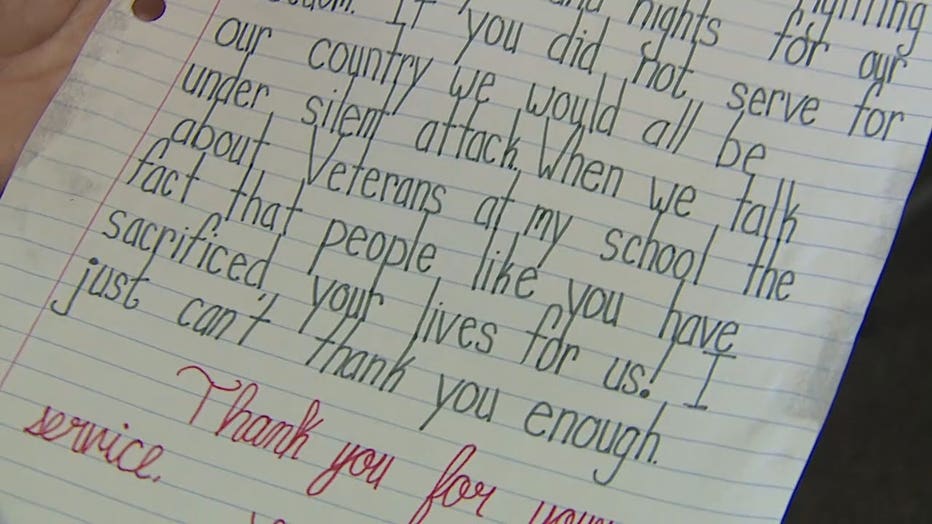 fighting
rights for our
If you did not serve for
our country we would all be
under silent attack. When we talk
about Veterans at my school the
fact that people like you have
sacrificed your lives for us! I
just can't thank you enough.
Thank you for your
service.